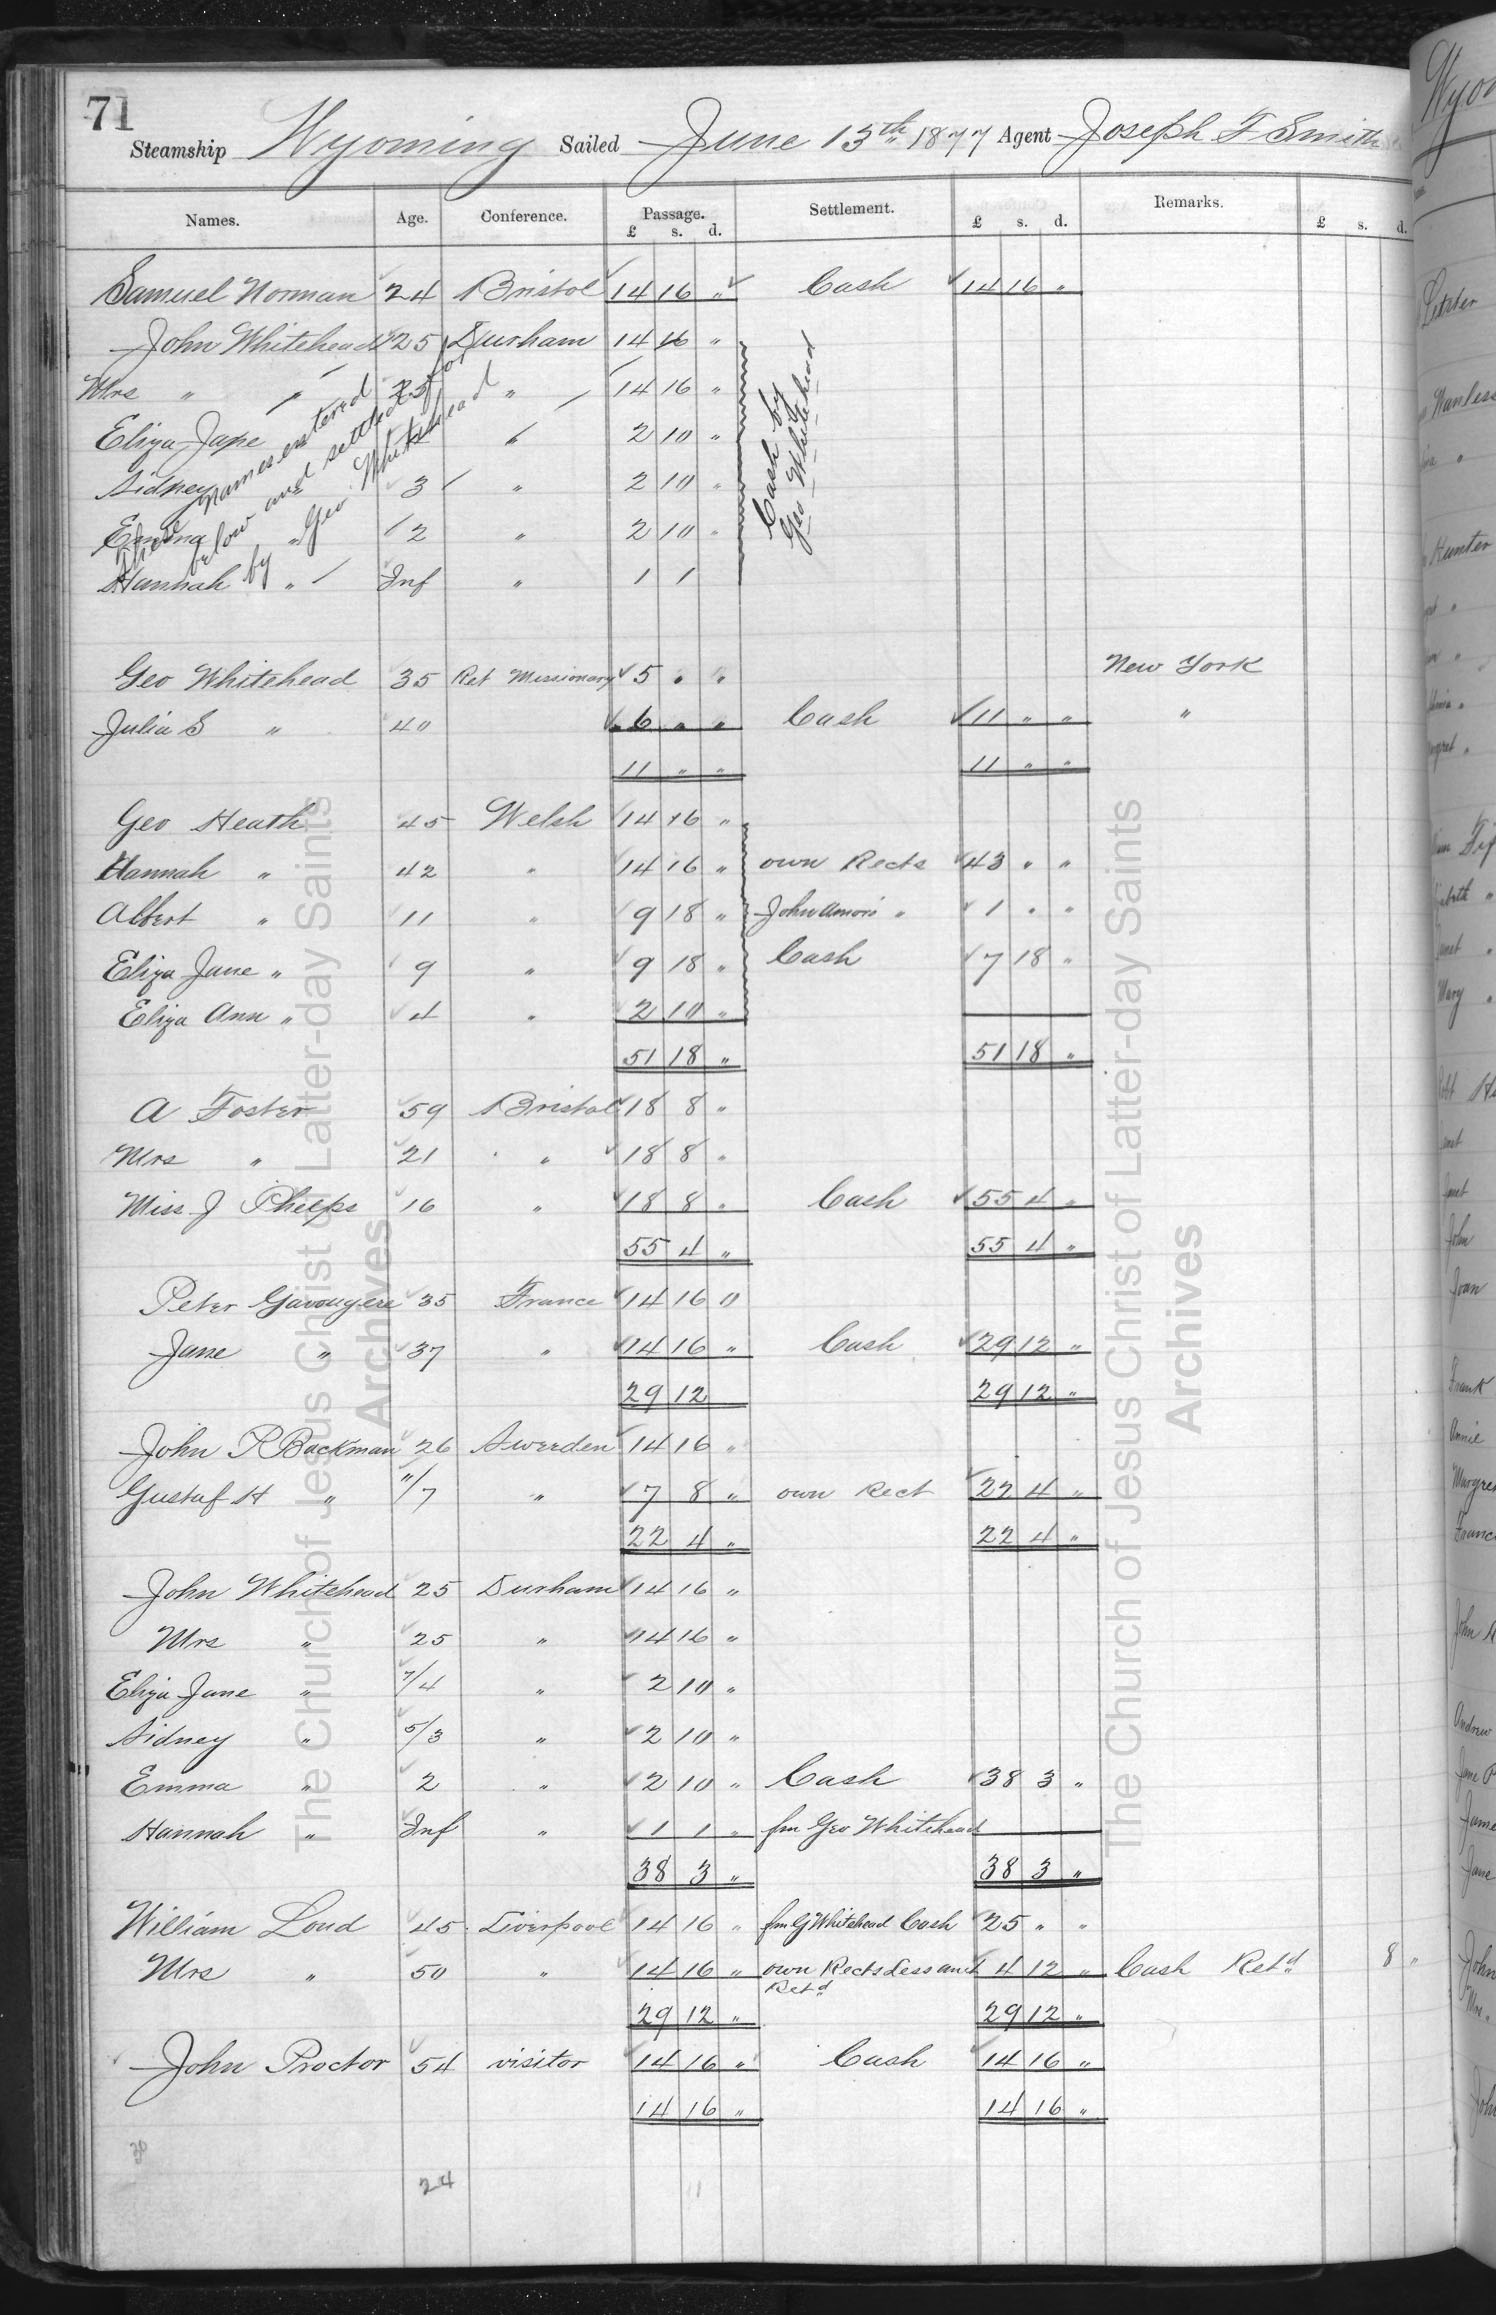 71
Steamship Wyoming Sailed June 13th 1877 Agent Joseph F Smith
Names. Age. Conference. Passage. Settlement. Remarks.
£ s. d. £ s. d. £ s. d.
Samuel Norman 24 Bristol 14 16 " Cash 14 16 "
John Whitehead 25 Durham 14 16 "
Mrs " " 25 " 14 16 "
Eliza Jane " 2 10 "
Sidney " 3 " 2 10 "
Emma " 2 " 2 10 "
Hannah " Inf " 1 1
These names entered
below and settled for
by Geo Whitehead
Cash by
Geo Whitehead
Geo Whitehead 35 Ret Missionary 5 " " New York
Julia S " 40 6 " " Cash 11 " " "
11 " " 11 " "
Geo Heath 45 Welsh 14 16 "
Hannah " 42 " 14 16 " own Rects 43 " "
Albert " 11 " 9 18 " John Amon's " 1 " "
Eliza Jane " 9 " 9 18 " Cash 7 18 "
Eliza Ann " 4 " 2 10 "
51 18 " 51 18 "
A Foster 59 Bristol 18 8 "
Mrs " 21 " 18 8 "
Miss J Phelps 16 " 18 8 " Cash 55 4 "
55 4 " 55 4 "
Peter Gavougere 35 France 14 16 0
Jane " 37 " 14 16 " Cash 29 12 "
29 12 29 12 "
John P Backman 26 Sweeden 14 16 "
Gustaf H " 11/7 " 7 8 " own Rect 22 4 "
22 4 " 22 4 "
John Whitehead 25 Durham 14 16 "
Mrs " 25 " 14 16 "
Eliza Jane " 7/4 " 2 10 "
Sidney " 5/3 " 2 10 "
Emma " 2 " 2 10 " Cash 38 3 "
Hannah " Inf " 1 1 " fm Geo Whitehead
38 3 " 38 3 "
William Loud 45 Liverpool 14 16 " fm G Whitehead Cash 25 " "
Mrs " 50 " 14 16 " own Rects Less amt 4 12 " Cash Retd 8 "
Retd
29 12 " 29 12 "
John Proctor 54 visitor 14 16 " Cash 14 16 "
14 16 " 14 16 "
24
The Church of Jesus Christ of Latter-day Saints
Archives
The Church of Jesus Christ of Latter-day Saints
Archives